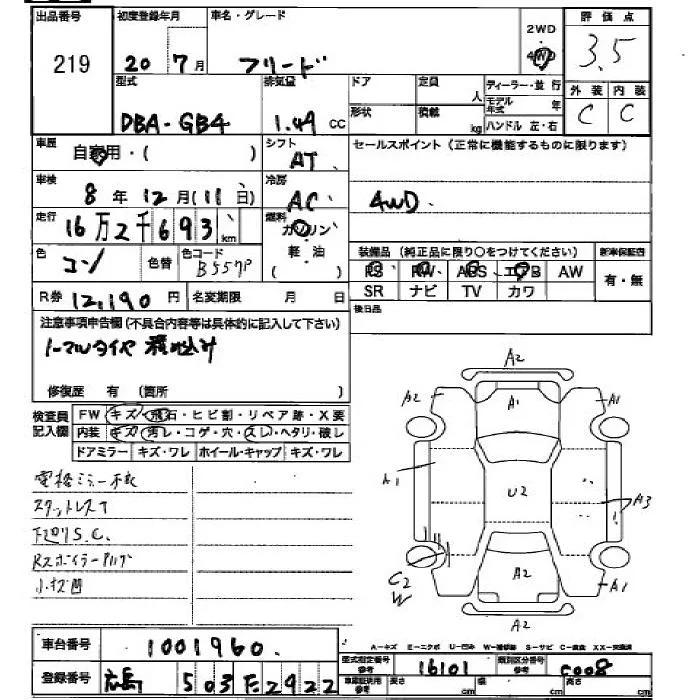 出品番号 初度登録年月 車名・グレード 2WD 評価点
219 20 7月 フリード 4WD 3.5
型式 排気量 ドア 定員 人 ディーラー・並行 外装 内装
DBA-GB4 1.49 CC 形状 積載 kg モデル年式 年 C C
ハンドル 左・右
車歴 自家用・( ) シフト AT セールスポイント(正常に機能するものに限ります)
車検 8年 12月(11日) 冷房 AC 4WD.
走行 16万2千693 km 燃料 ガソリン
色 コン 色替 色コード B557P 軽・油 装備品(純正品に限り○をつけてください) 新車保証書
PS PW ABS エアB AW 有・無
R券 12,190円 名変期限 月 日 SR ナビ TV カワ
注意事項申告欄(不具合内容等は具体的に記入して下さい) 後日品
ノーマルタイヤ 積み込み
修復歴 有(箇所 )
検査員 FW キズ・飛石・ヒビ割・リペア跡・X要
記入欄 内装 キズ・汚レ・コゲ・穴・スレ・ヘタリ・破レ
ドアミラー キズ・ワレ ホイール・キャップ キズ・ワレ
電格ミラー不良
スタットレスT
下廻りS.C.
Rスポイラー
小キズ凹
A2
A2 A1 A1
A1 U2 A3
C2
W A2 A1
A2
A-キズ E-エクボ U-凹み W-補修跡 S-サビ C-腐食 XX-交換済
車台番号 1001960.
型式指定番号 参考 16101 類別区分番号 参考 C008
登録番号 広島 503 た 2922
参考 長さ cm 幅 cm 高さ cm